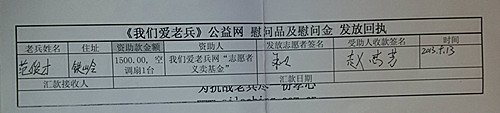 《我们爱老兵》公益网 慰问品及慰问金 发放回执
老兵姓名 住址 资助款金额 资助人 发放志愿者签名 受助人收款签名 时间
1500.00，空调扇1台 我们爱老兵网“志愿者义卖基金”
汇款接收人 汇款日期
为抗战老兵尽一份孝心